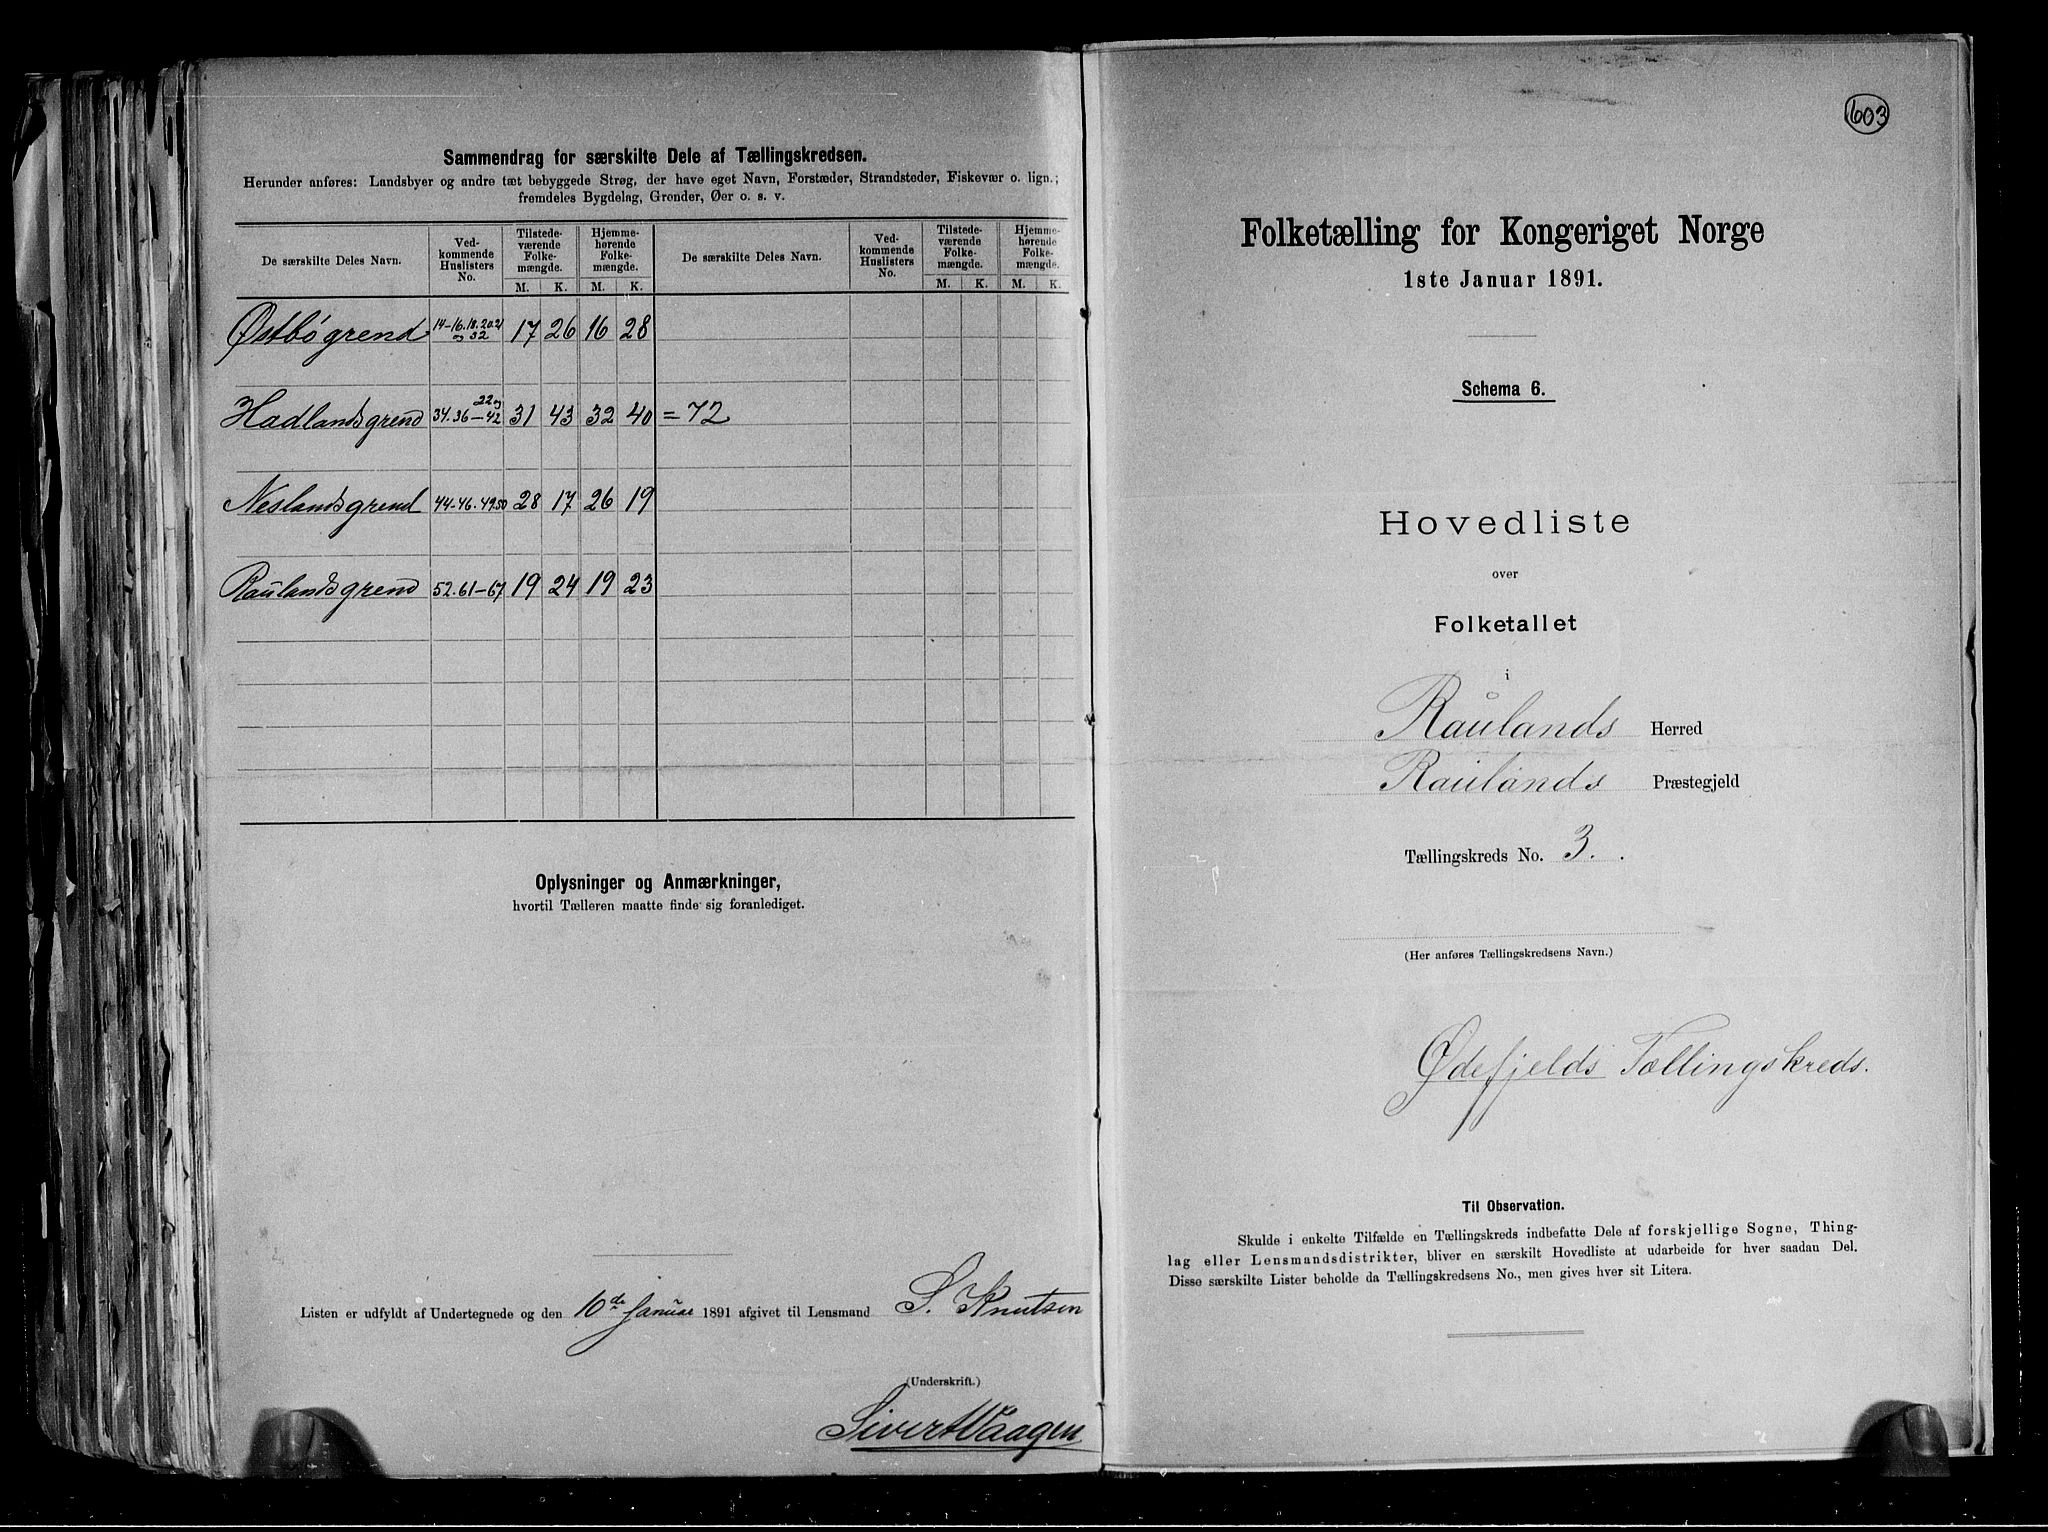 Sammendrag for særskilte Dele af Tællingskredsen.
Herunder anføres: Landsbyer og andre tæt bebyggede Strøg, der have eget Navn, Forstæder, Strandsteder, Fiskevær o. lign.;
fremdeles Bygdelag, Grender, Øer o. s. v.
De særskilte Deles Navn. Ved- kommende Huslisters No. Tilstede- værende Folke- mængde. Hjemme- hørende Folke- mængde. De særskilte Deles Navn. Ved- kommende Huslisters No. Tilstede- værende Folke- mængde. Hjemme- hørende Folke- mængde.
M. K. M. K. M. K. M. K.
Østbøgrend 14-16.18.20.21 og 32 17 26 16 28
Hadlandsgrend 22 og 34.36-42 31 43 32 40 = 72
Neslandsgrend 44-46.49.50 28 17 26 19
Raulandsgrend 52.61-67 19 24 19 23
Oplysninger og Anmærkninger,
hvortil Tælleren maatte finde sig foranlediget.
Listen er udfyldt af Undertegnede og den 10de Januar 1891 afgivet til Lensmand S. Knutsen
(Underskrift.)
Sivert Vaagen
603
Folketælling for Kongeriget Norge
1ste Januar 1891.
Schema 6.
Hovedliste
over
Folketallet
i
Raulands Herred
Raulands Præstegjeld
Tællingskreds No. 3.
(Her anføres Tællingskredsens Navn.)
Ødefjelds Tællingskreds.
Til Observation.
Skulde i enkelte Tilfælde en Tællingskreds indbefatte Dele af forskjellige Sogne, Thing-
lag eller Lensmandsdistrikter, bliver en særskilt Hovedliste at udarbeide for hver saadan Del.
Disse særskilte Lister beholde da Tællingskredsens No., men gives hver sit Litera.